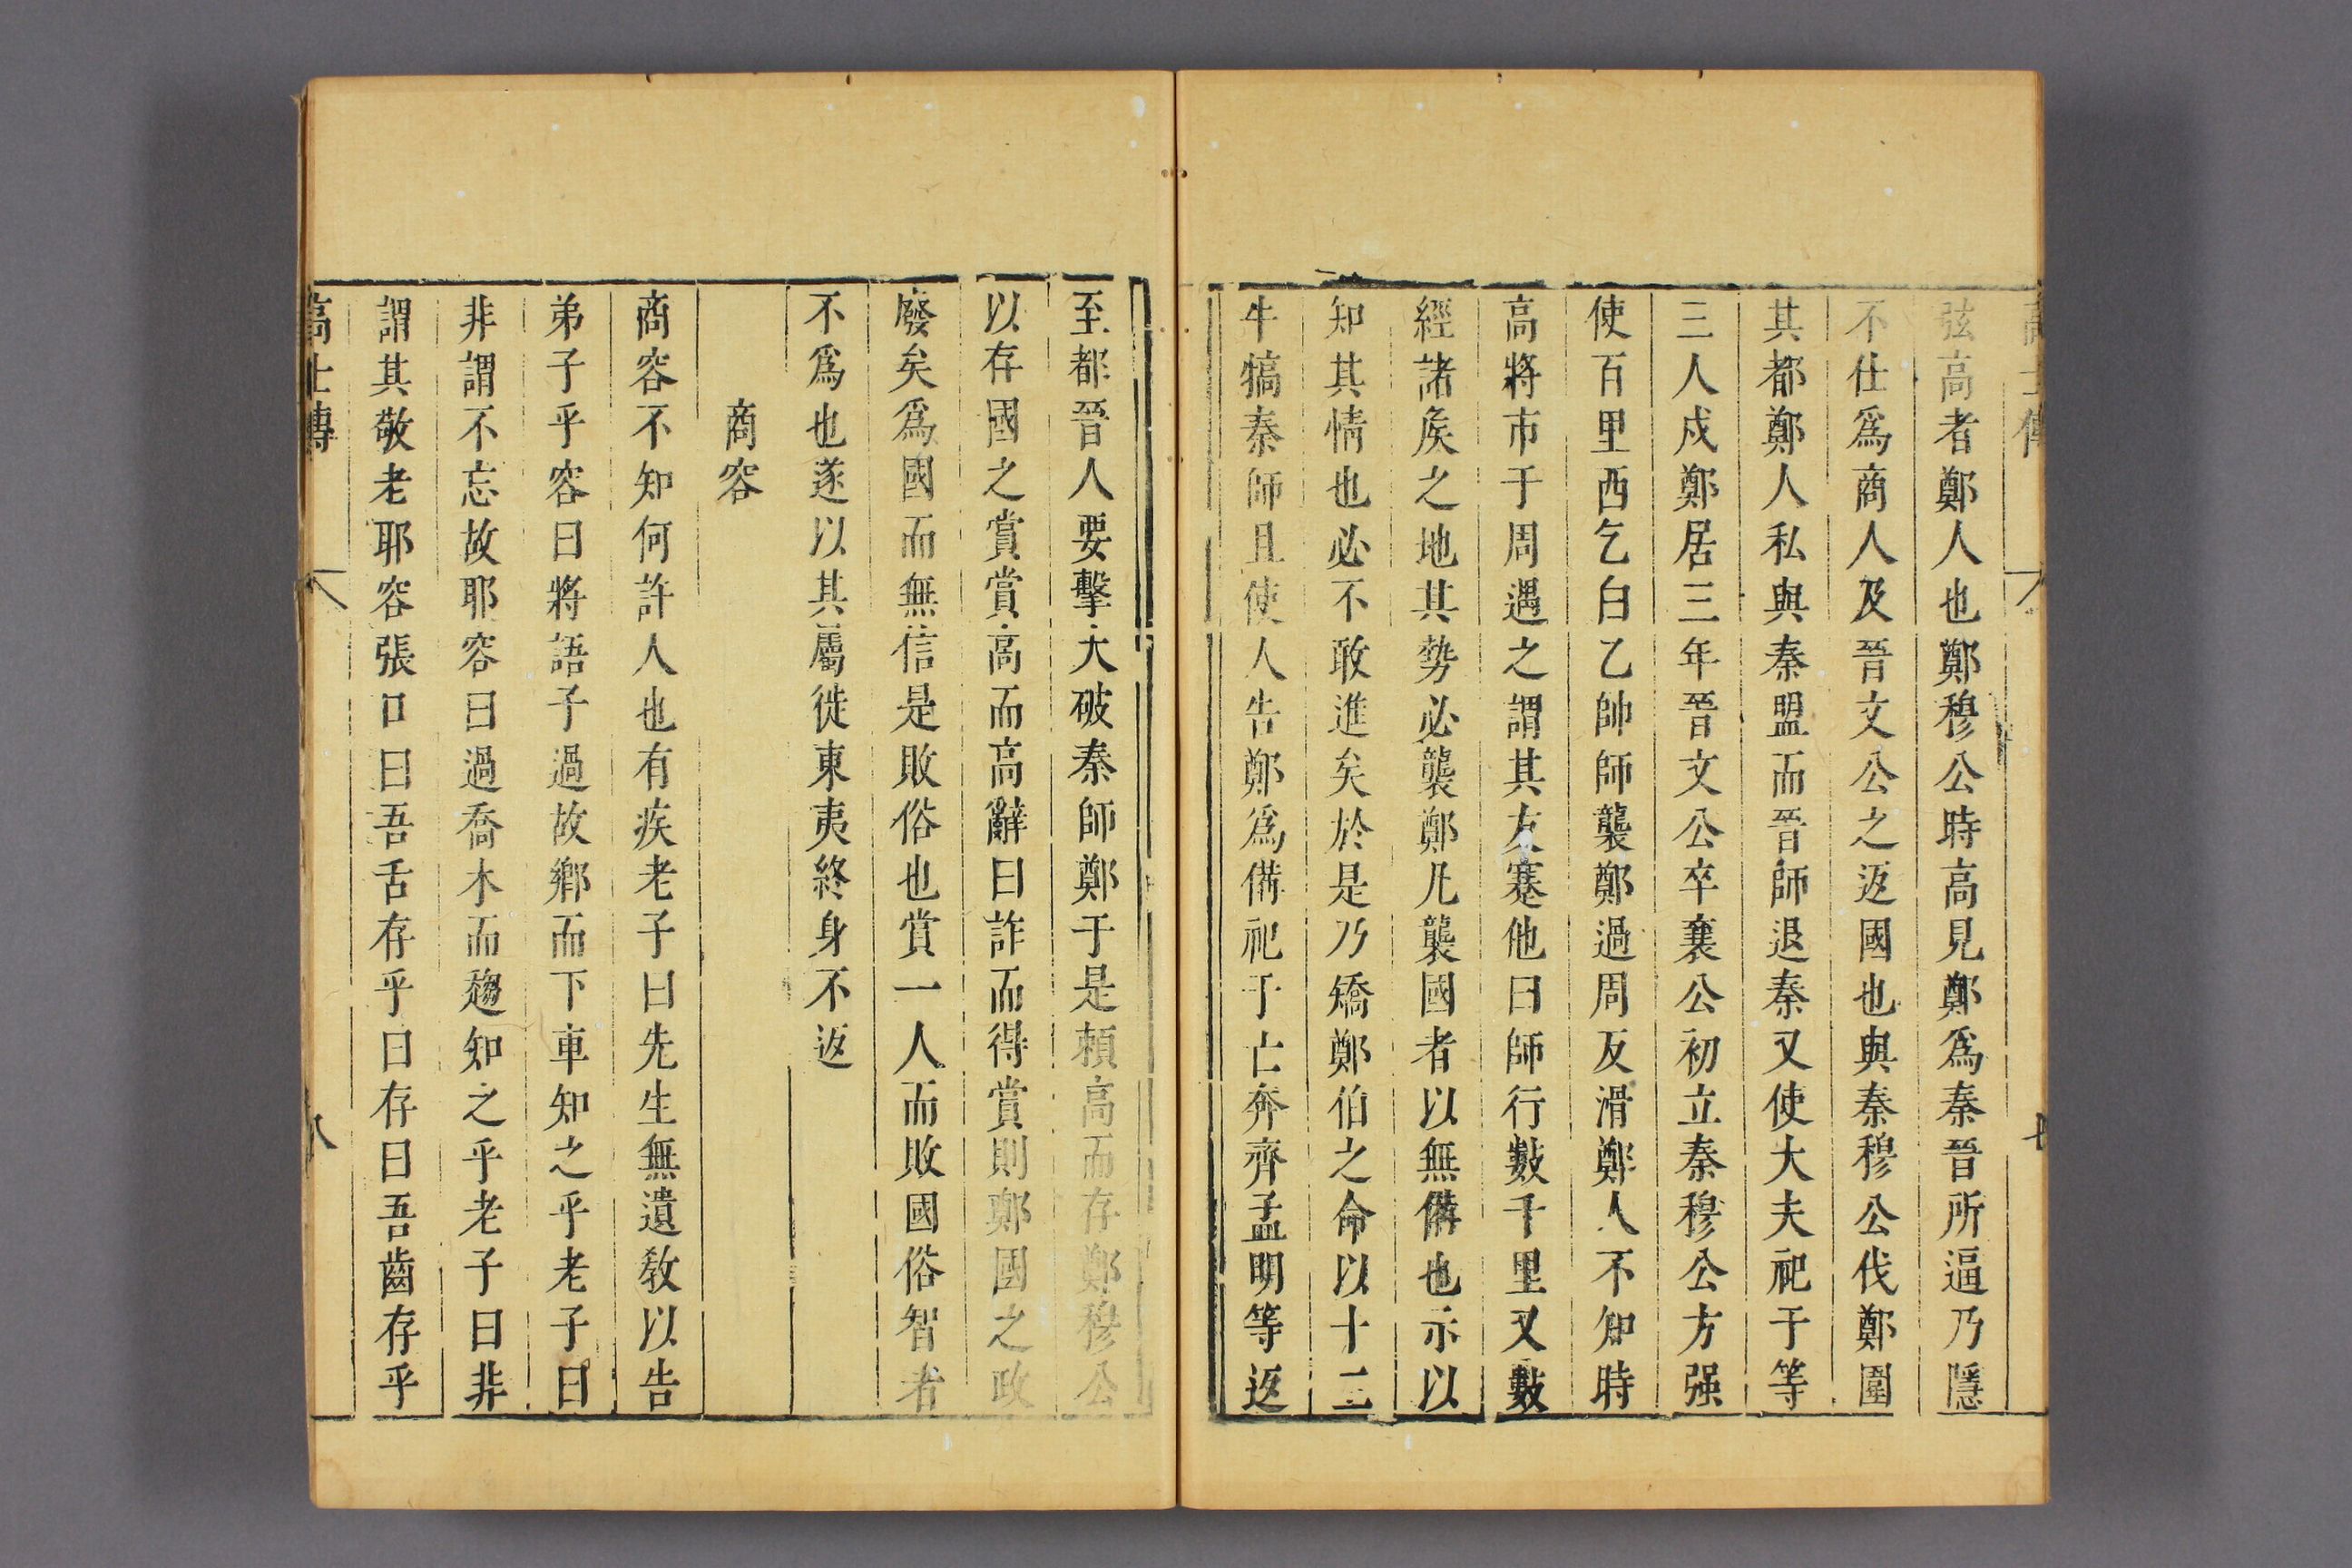 高士傳
弦高者鄭人也鄭穆公時高見鄭爲秦晉所逼乃隱
不仕爲商人及晉文公之返國也與秦穆公伐鄭圍
其都鄭人私與秦盟而晉師退秦又使大夫祀于等
三人戍鄭居三年晉文公卒襄公初立秦穆公方强
使百里西乞白乙帥師襲鄭過周反滑鄭人不知時
高將市于周遇之謂其友蹇他曰師行數千里又數
經諸矦之地其勢必襲鄭凡襲國者以無備也示以
知其情也必不敢進矣於是乃矯鄭伯之命以十二
牛犒秦師且使人告鄭爲備祀于亡奔齊孟明等返
至都晉人要擊大破秦師鄭于是賴高而存鄭穆公
以存國之賞賞高而高辭曰詐而得賞則鄭國之政
廢矣爲國而無信是敗俗也賞一人而敗國俗智者
不爲也遂以其屬徙東夷終身不返
商容
商容不知何許人也有疾老子曰先生無遺敎以告
弟子乎容曰將語子過故鄉而下車知之乎老子曰
非謂不忘故耶容曰過喬木而趨知之乎老子曰非
謂其敬老耶容張口曰吾舌存乎曰存曰吾齒存乎
高士傳
八